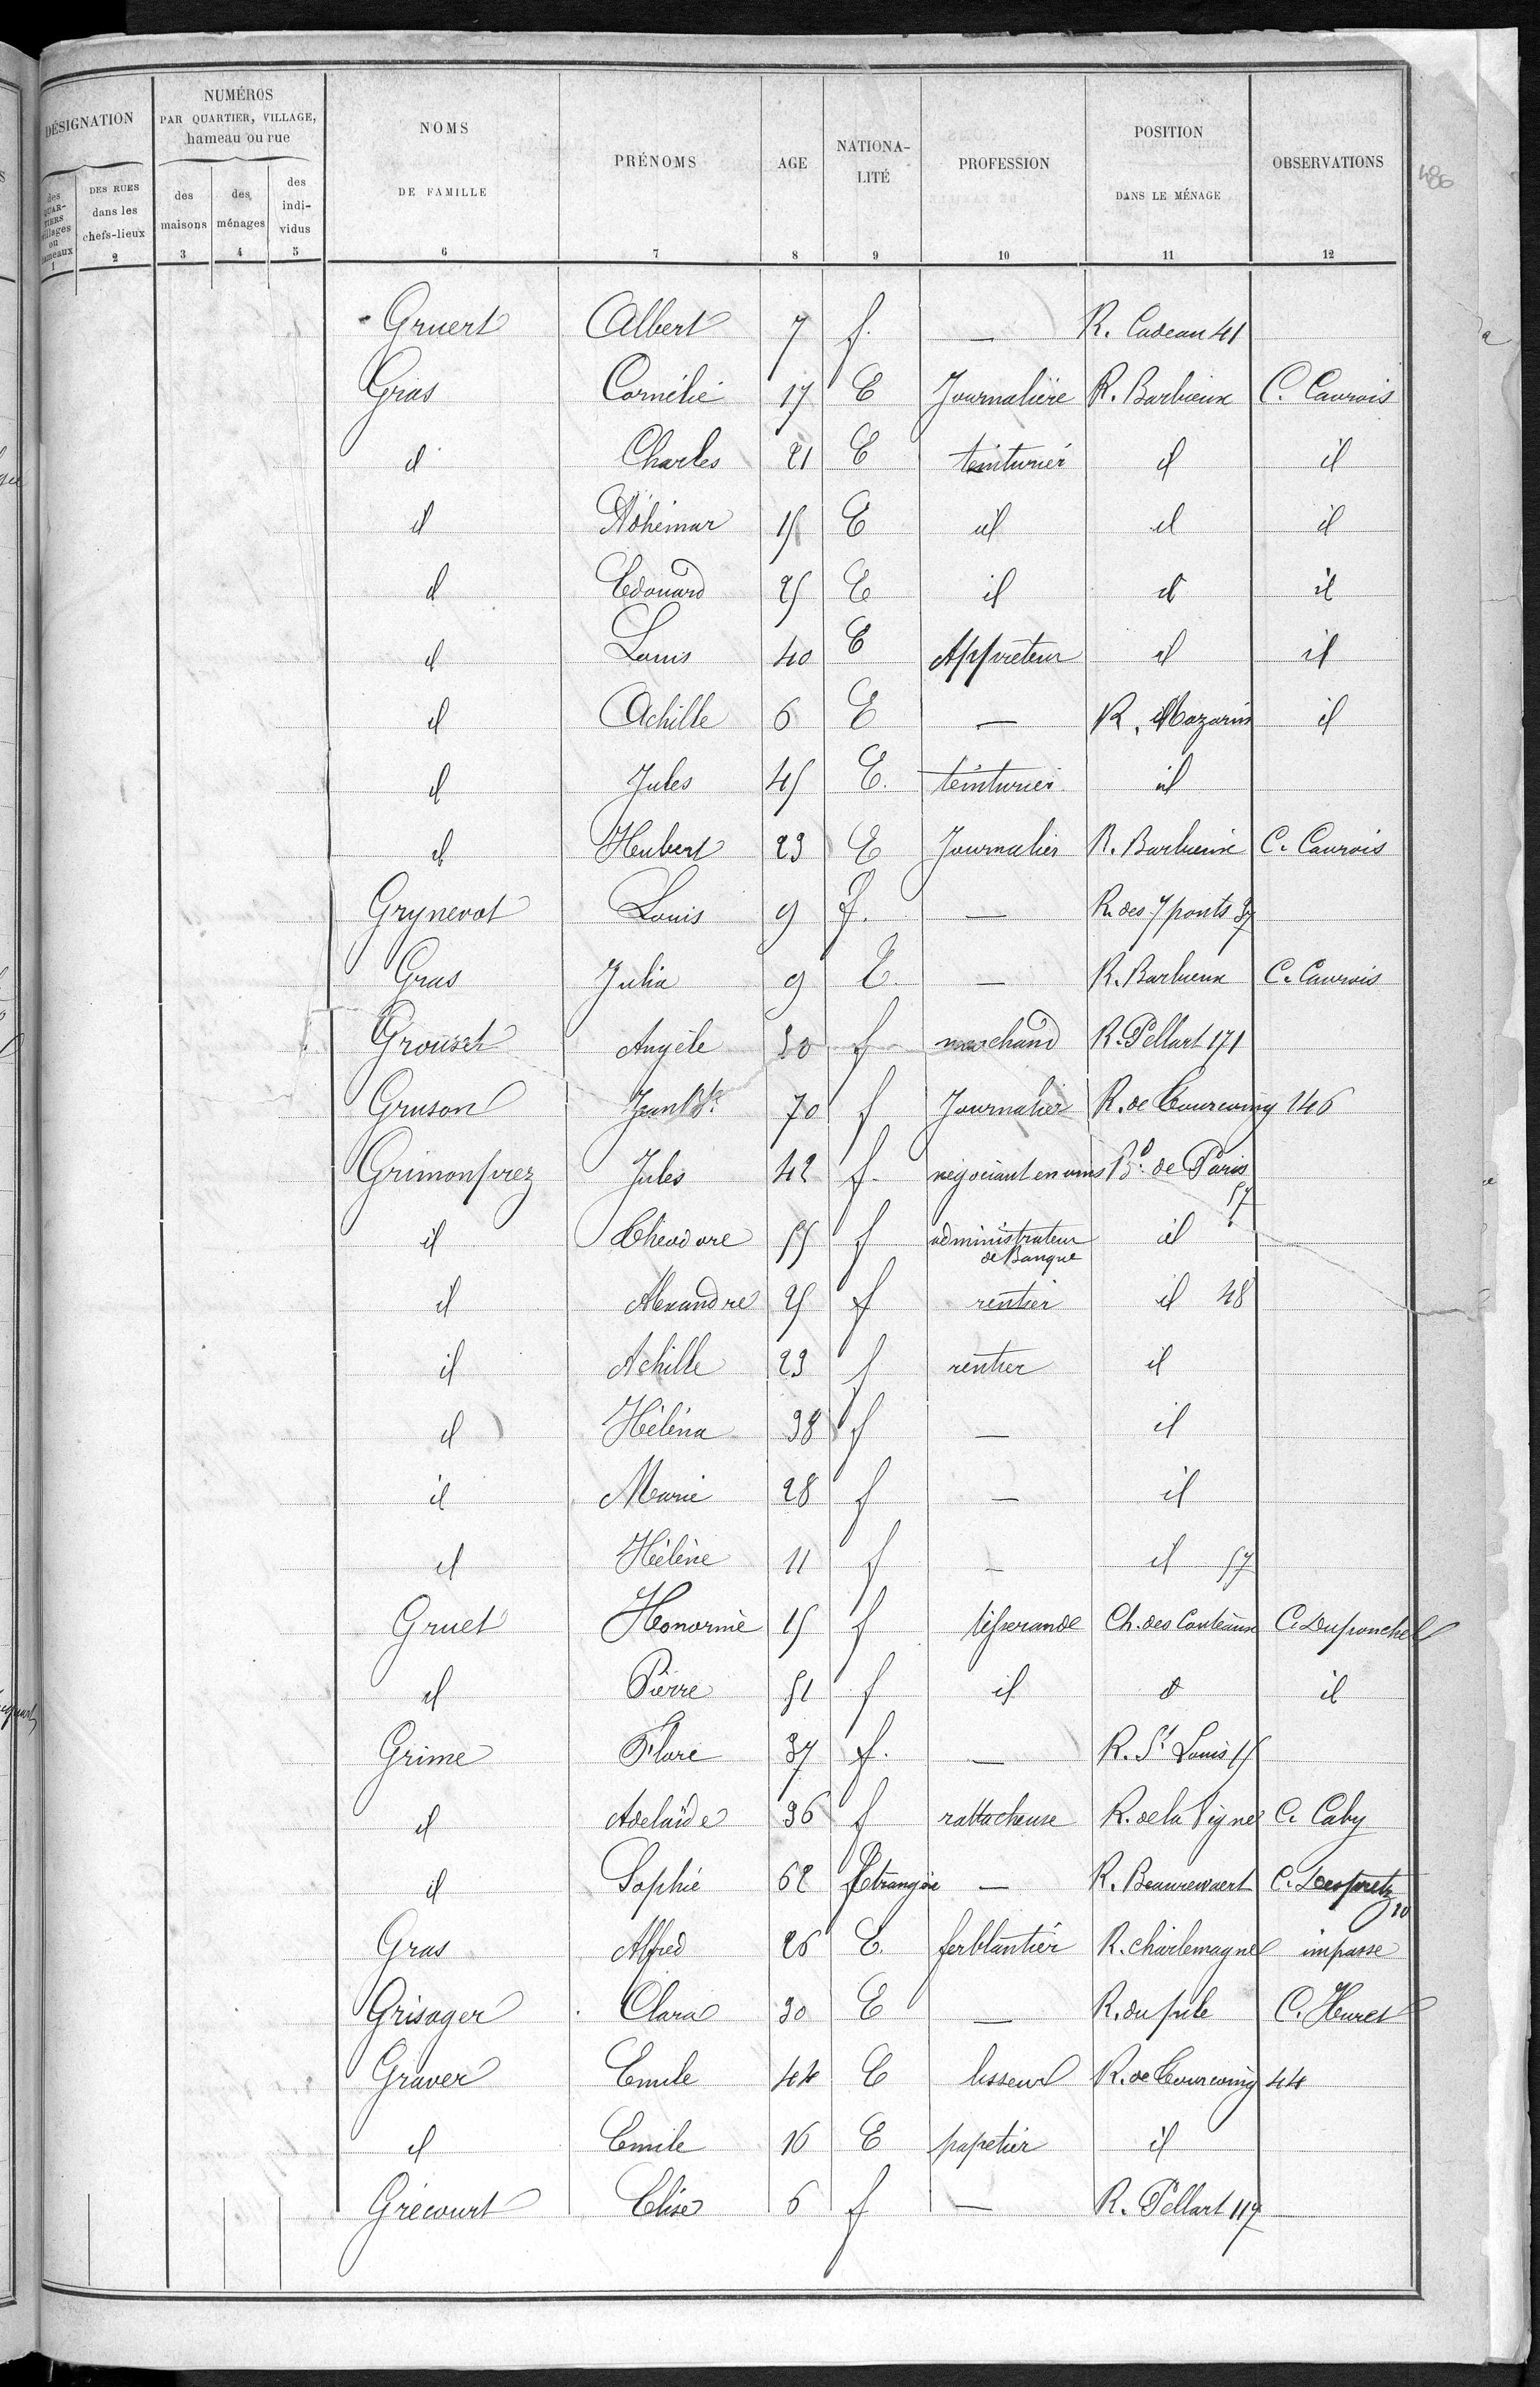 DÉSIGNATION
NUMÉROS
PAR QUARTIER, VILLAGE,
hameau ou rue
NOMS
DE FAMILLE
PRÉNOMS
AGE
NATIONA-
LITÉ
PROFESSION
POSITION
DANS LE MÉNAGE
OBSERVATIONS
486
des
QUAR-
TIERS
villages
ou
hameaux
DES RUES
dans les
chefs-lieux
des
maisons
des
ménages
des
indi-
vidus
1 2 3 4 5 6 7 8 9 10 11 12
Gruert Albert 7 f. — R. Cadeau 41
Gras Cornélie 17 E Journalière R. Barbieux C. Cauvois
id Charles 21 E teinturier id id
id 15 E id id id
id Edouard 25 E id id id
id Louis 40 E Appréteur id id
id Achille 6 E — R. Mazarin id
id Jules 45 E. teinturier id
id Hubert 23 E Journalier R. Barbieux C. Cauvois
Grynevot Louis 9 f. — R. des 7 ponts 37
Gras Julia 9 E. — R. Barbieux C. Cauvois
Grouset Angèle 30 f marchand R. Pellart 171
Gruson Jean Bte 70 f Journalier R. de Tourcoing 146
Grimonprez Jules 42 f. négociant en vins Bd. de Paris
57
id Théodore 55 f administrateur id
de Banque
id Alexandre 25 f rentier id 48
id Achille 23 f rentier id
id Héléna 38 f — id
id Marie 28 f — id
id Hélène 11 f — id 57
Gruet Honorine 15 f tisserande Ch. des Couteaux C. Duponchel
id Pierre 51 f id id id
Grime Flore 37 f. — R. St Louis 15
id Adelaïde 36 f rattacheuse R. de la Vigne C. Caby
id Sophie 62 Etrangère — R. Beaurewaert C. Despretz
20
Gras Alfred 26 E. ferblantier R. charlemagne impasse
Grisager Clara 30 E — R. du pile C. Heuret
Graver Emile 44 E lisseur R. de Tourcoing 44
id Emile 16 E papetier id
Grécourt Elise 6 f — R. Pellart 117